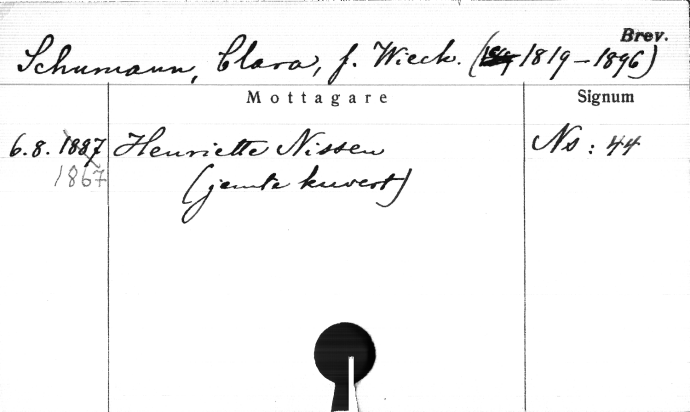 Brev.
Schumann, Clara, f. Wieck. (1819–1896)
Mottagare Signum
6.8. 1887 Henriette Nissen Ns: 44
1867 (jemte kuvert)